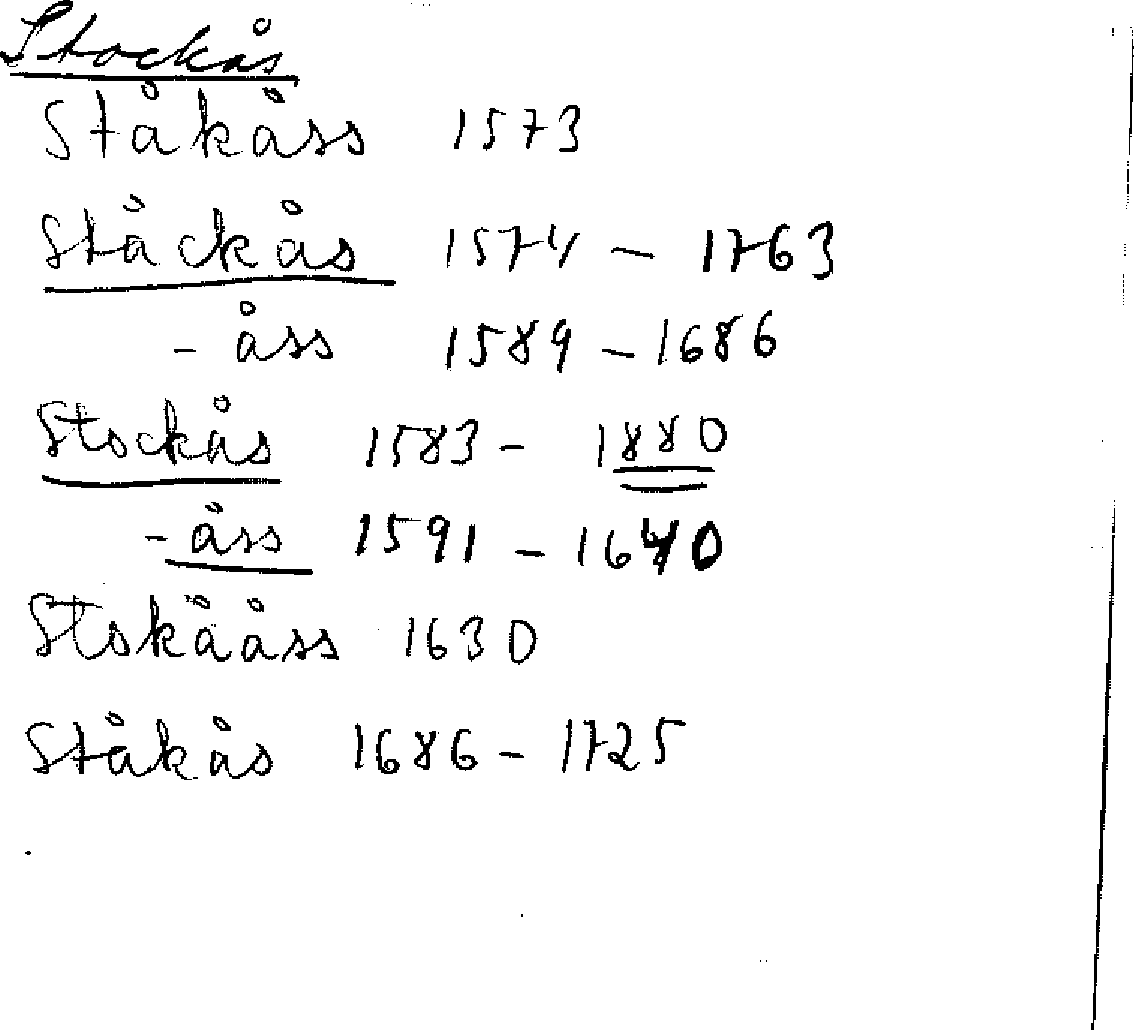 Stockås
Ståkåss 1573
Ståckås 1574 – 1763
- åss 1589 – 1686
Stockås 1583 - 1880
- åss 1591 – 1640
Stokååss 1630
Ståkås 1686 - 1725